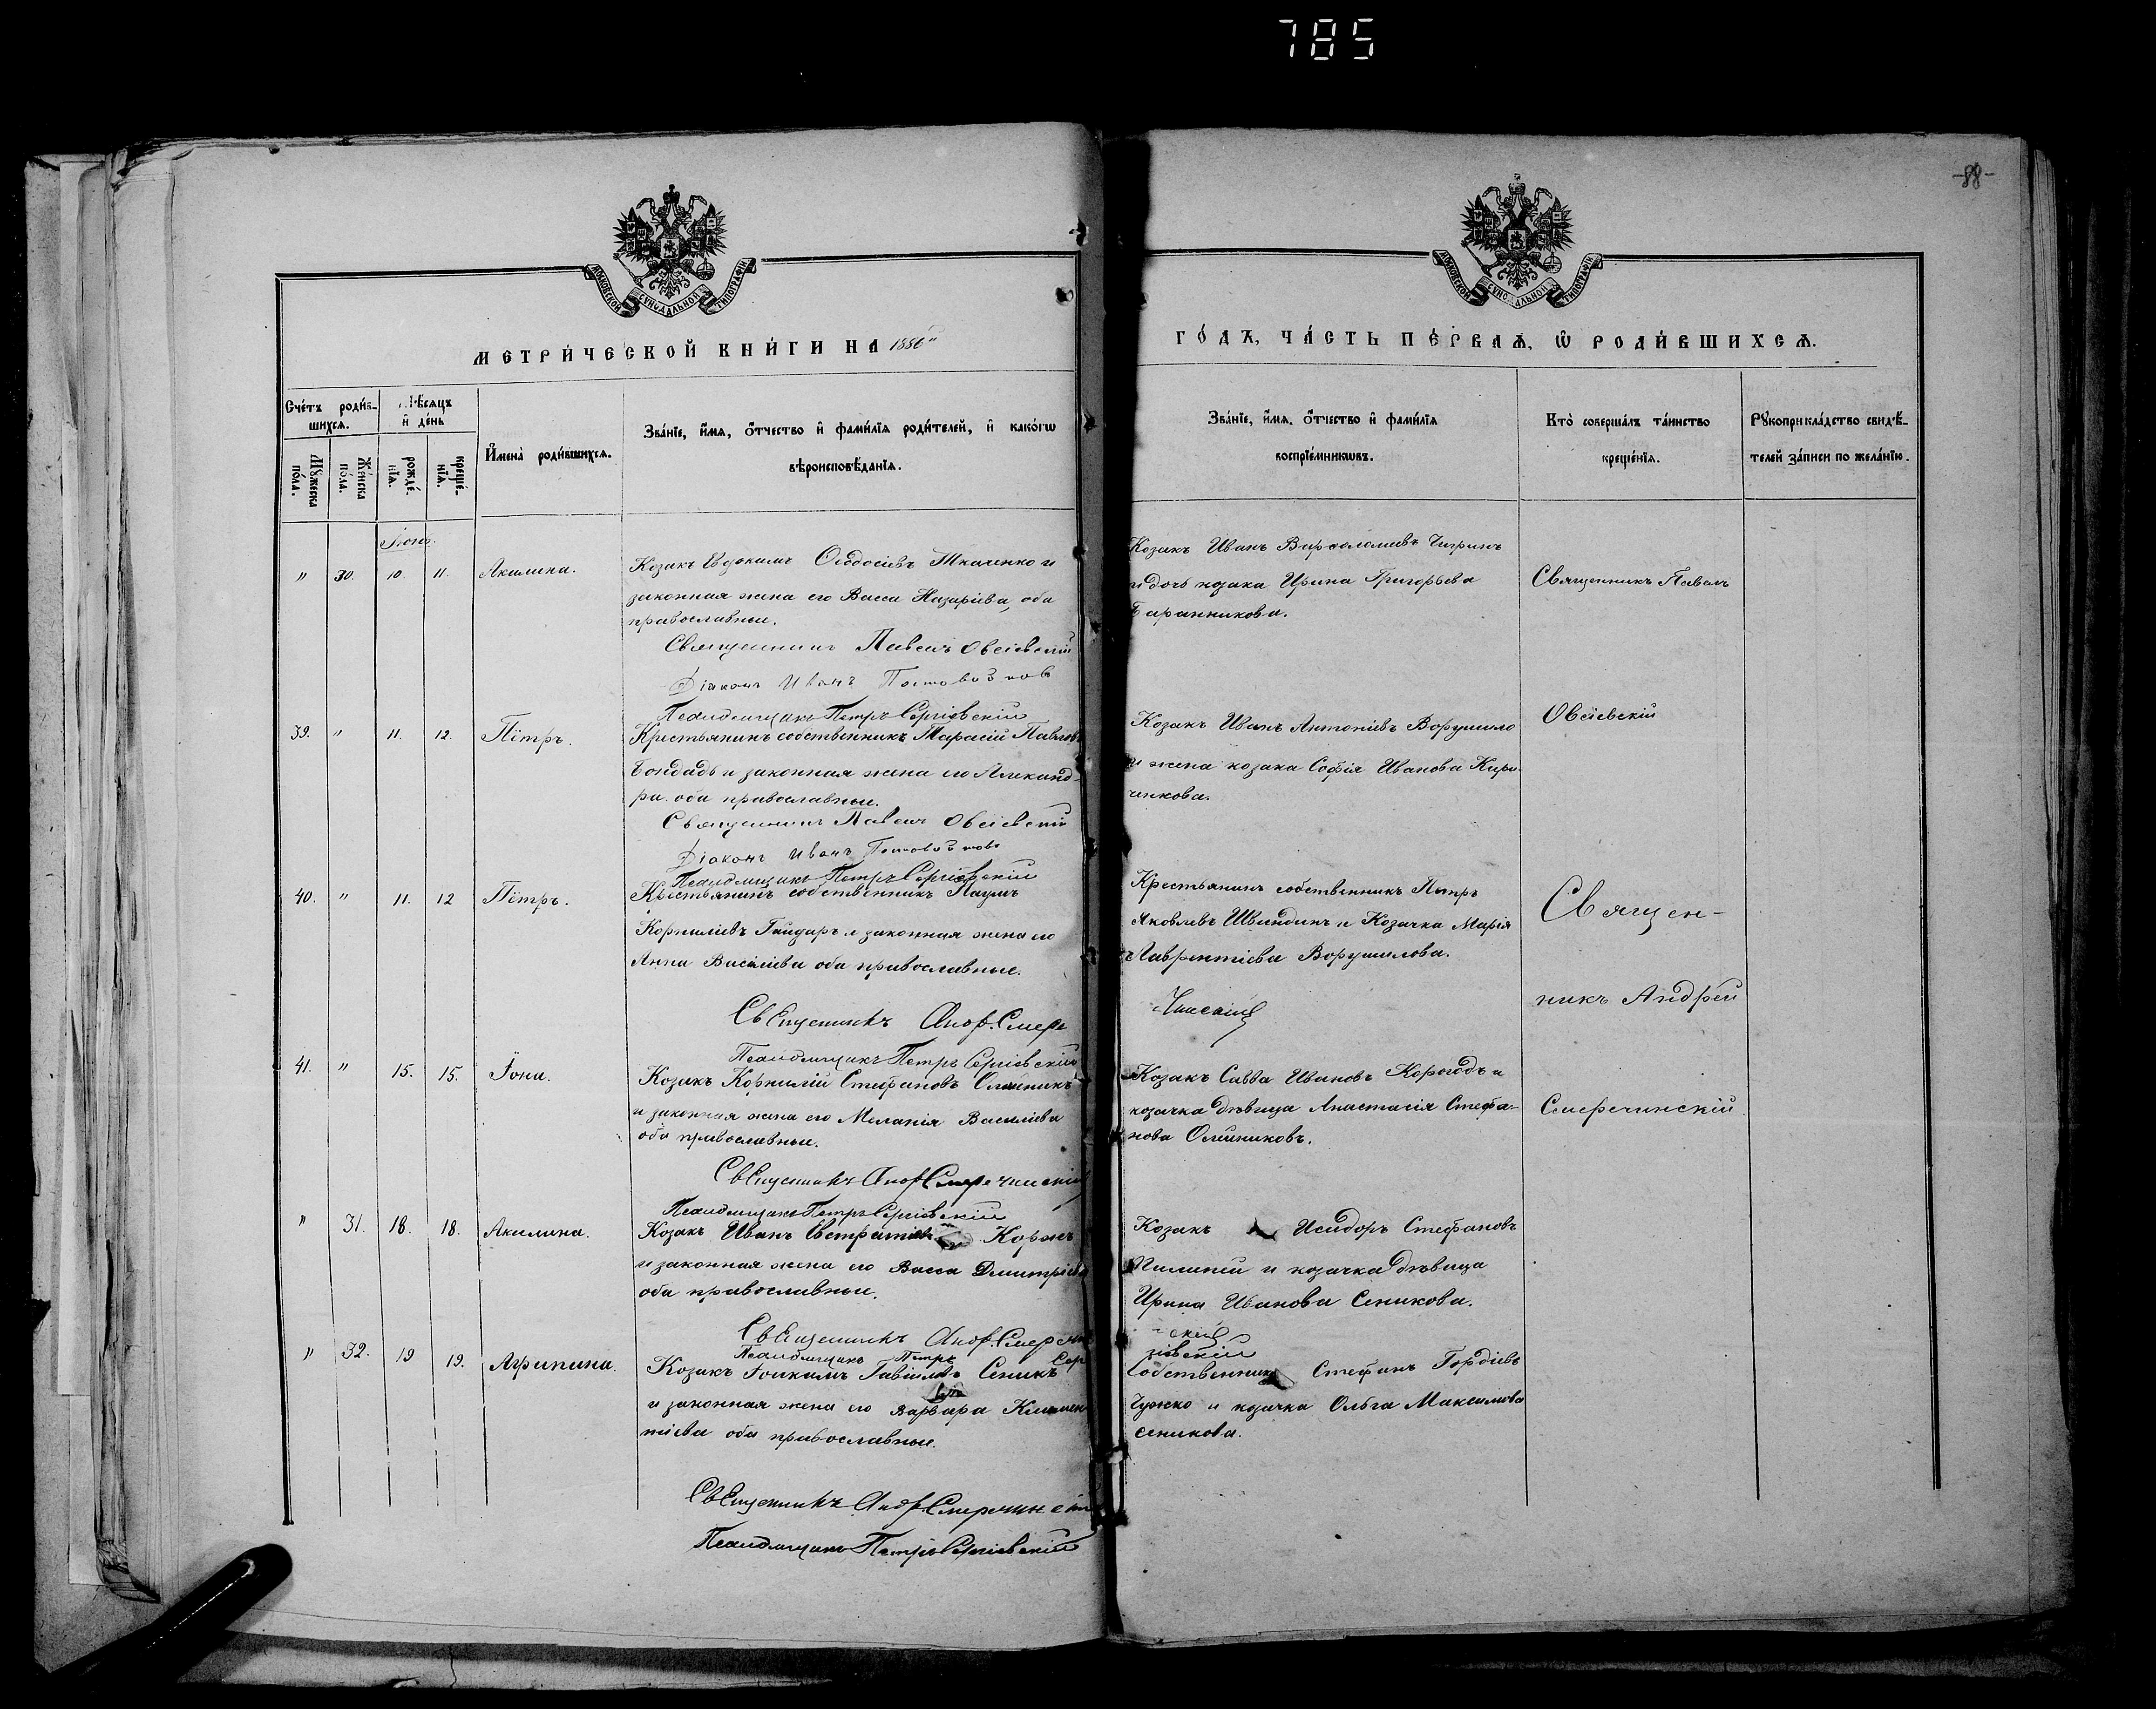 785
-88-
МОСКОВСКОЙ СѴНОДАЛЬНОЙ ТИПОГРАФІИ
МОСКОВСКОЙ СѴНОДАЛЬНОЙ ТИПОГРАФІИ
МЕТРИ́ЧЕСКОЙ КНИ́ГИ НА 1886
ГО́ДЪ, ЧА́СТЬ ПЕ́РВАѦ, Ѡ҆ РОДИ́ВШИХСѦ.
Сче́тъ роди́в-
шихсѧ.
Мꙋ́жеска
по́ла.
Же́нска
по́ла.
Мѣ́сѧцъ
и҆ де́нь
рожде́-
нїѧ.
креще́-
нїѧ.
И҆мена̀ роди́вшихсѧ.
Зва́нїе, и҆́мѧ, ѻ҆́тчество и҆ фами́лїѧ роди́телей, и҆ како́гѡ
вѣроисповѣ́данїѧ.
Зва́нїе, и҆́мѧ, ѻ҆́тчество и҆ фами́лїѧ
воспрїе́мникѡвъ.
Кто̀ соверша́лъ та́инство
креще́нїѧ.
Рꙋкоприкла́дство свидѣ́-
телей за́писи по жела́нїю.
Іюнь.
" 30. 10. 11. Акилина.
Козакъ Евдокимъ Ѳеодосіевъ Ткаченко и
законная жена его Васса Назаріева, оба
православные.
Священникъ Павелъ Овсіевскій
Діаконъ Иванъ
Псаломщикъ Петръ Сергіевскій
Козакъ Иванъ Варѳоломеевъ Чигринъ
и дочь козака Ирина Григорьева
Баранникова.
Священникъ Павелъ
Овсіевскій
39. " 11. 12. Пётръ.
Крестьянинъ собственникъ Тарасій Павловъ
Бондарь и законная жена его Александ-
ра оба православные.
Священникъ Павелъ Овсіевскій
Діаконъ Иванъ
Псаломщикъ Петръ Сергіевскій
Козакъ Иванъ Антоніевъ Ворушило
и жена козака Софія Иванова Кири-
ченкова.
40. " 11. 12 Пётръ.
Крестьянинъ собственникъ Наумъ
Корниліевъ Гайдаръ и законная жена его
Анна Василіева оба православные.
Священникъ Андр. Смере
чинскій
Псаломщикъ Петръ Сергіевскій
Крестьянинъ собственникъ Петръ
Яковлевъ Швиндинъ и Козачка Марія
Лаврентіева Ворушилова.
Священ-
никъ Андрей
Смеречинскій
41. " 15. 15. Іона.
Козакъ Корнилій Стефановъ Олейникъ
и законная жена его Меланія Василіева
оба православные.
Священникъ Андр Смеречинскій
Псаломщикъ Петръ Сергіевскій
Козакъ Савва Ивановъ Корогодъ и
козачка дѣвица Анастасія Стефа-
нова Олейниковъ.
" 31. 18. 18. Акилина.
Козакъ Иванъ Евстратіевъ Коржъ
и законная жена его Васса Дмитріева
оба православные.
Священникъ Андр. Смеречин
скій
Псаломщикъ Петръ Сер
гіевскій
Козакъ Исидоръ Стефановъ
Пилипей и козачка дѣвица
Ирина Иванова Сеникова.
" 32. 19 19. Агрипина.
Козакъ Іоакимъ Гавіиловъ Сеникъ
и законная жена его Варвара Климен-
тіева оба православные.
Священникъ Андр. Смеречинскій
Псаломщикъ Петръ Сергіевскій
Собственникъ Стефанъ Гордіевъ
Чужко и козачка Ольга Максимова
Сеникова.